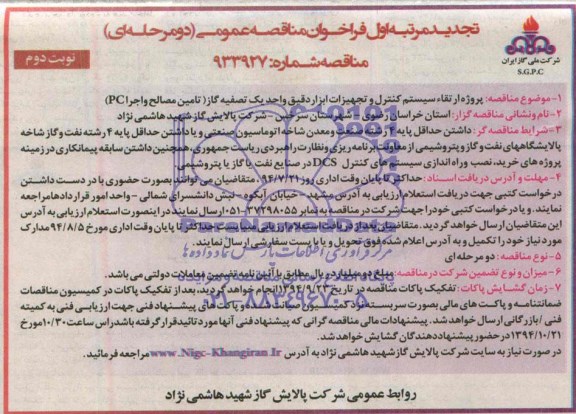 تجدید مرتبه اول فراخوان مناقصه عمومی (دو مرحله ای)
مناقصه شماره: ۹۳۳۹۲۷
نوبت دوم
شرکت ملی گاز ایران
S.G.P.C
۱-موضوع مناقصه: پروژه ارتقاء سیستم کنترل و تجهیزات ابزار دقیق واحد یک تصفیه گاز ( تامین مصالح و اجرا PC)
۲-نام و نشانی مناقصه گزار: استان خراسان رضوی - شهرستان سرخس - شرکت پالایش گاز شهید هاشمی نژاد
۳-شرایط مناقصه گر: داشتن حداقل پایه ۴ رشته صنعت و معدن شاخه اتوماسیون صنعتی و یا داشتن حداقل پایه ۴ رشته نفت و گاز شاخه
پالایشگاههای نفت و گاز و پتروشیمی از معاونت برنامه ریزی و نظارت راهبردی ریاست جمهوری، همچنین داشتن سابقه پیمانکاری در زمینه
پروژه های خرید، نصب و راه اندازی سیستم های کنترل DCS در صنایع نفت یا گاز یا پتروشیمی
۴- مهلت و آدرس دریافت اسناد: حداکثر تا پایان وقت اداری روز ۹۴/۷/۲۱، متقاضیان می توانند بصورت حضوری با در دست داشتن
درخواست کتبی جهت دریافت استعلام ارزیابی به آدرس مشهد -خیابان آبکوه- نبش دانشسرای شمالی -واحد امور قراردادها مراجعه
نمایند. و یا درخواست کتبی خود را جهت شرکت در مناقصه به نمابر ۳۷۲۹۸۰۵۵-۰۵۱ ارسال نمایند در اینصورت استعلام ارزیابی به آدرس
این متقاضیان ارسال خواهد گردید. متقاضیان بعد از دریافت استعلام ارزیابی میبایست حداکثر تا پایان وقت اداری مورخ ۹۴/۸/۵ مدارک
مورد نیاز خود را تکمیل و به آدرس اعلام شده فوق تحویل و یا با پست سفارشی ارسال نمایند.
۵- نوع مناقصه: دو مرحله ای
۶-میزان و نوع تضمین شرکت در مناقصه: مبلغ دو میلیارد ریال مطابق با آئین نامه تضمین معاملات دولتی می باشد.
۷-زمان گشایش پاکات: تفکیک پاکات مناقصه در تاریخ ۱۳۹۴/۹/۲۳ انجام خواهد گردید. بعد از تفکیک پاکات در کمیسیون مناقصات
ضمانتنامه و پاکت های مالی بصورت سربسته نزد کمیسیون مناقصات مانده و پاکت های پیشنهاد فنی جهت ارزیابی فنی به کمیته
فنی / بازرگانی ارسال خواهد شد. پیشنهادات مالی مناقصه گرانی که پیشنهاد فنی آنها مورد تائید قرار گرفته باشد راس ساعت ۱۰/۳۰ مورخ
۱۳۹۴/۱۰/۲۱ در حضور پیشنهاد دهندگان گشایش خواهد شد.
در صورت نیاز به سایت شرکت پالایش گاز شهید هاشمی نژاد به آدرس www.Nigc-Khangiran.Ir مراجعه فرمائید.
روابط عمومی شرکت پالایش گاز شهید هاشمی نژاد